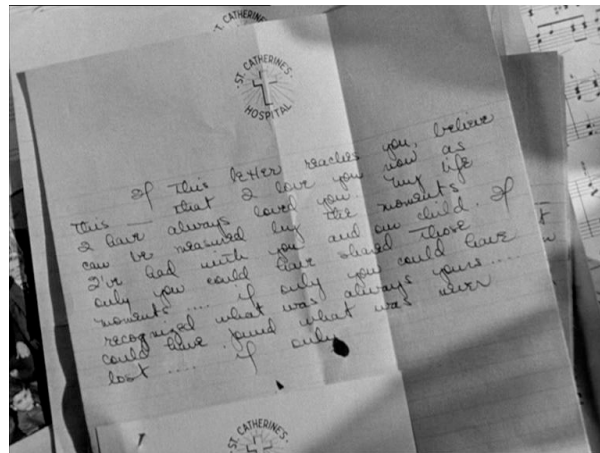 T. CATHERINE
ST. CATHERINE'S
HOSPITAL
If this letter reaches you, believe
this — that I love you now as
I have always loved you. My life
can be measured by the moments
I've had with you and our child. If
only you could have shared those
moments .... if only you could have
recognized what was always yours ....
could have found what was never
lost ..... If only
ST. CATHERINE'S